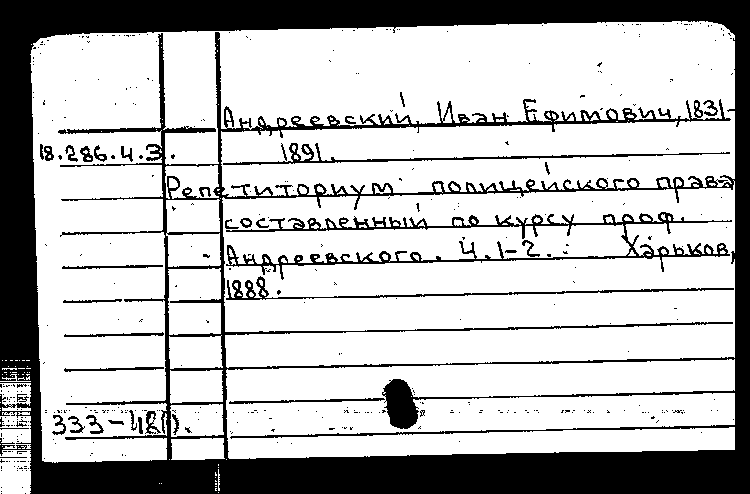 Андреевский, Иван Ефимович, 1831-
18.286.4.3. 1891.
Репетиториум полицейского права
составленный по курсу проф.
Андреевского. Ч. 1-2. Харьков,
1888.
333-